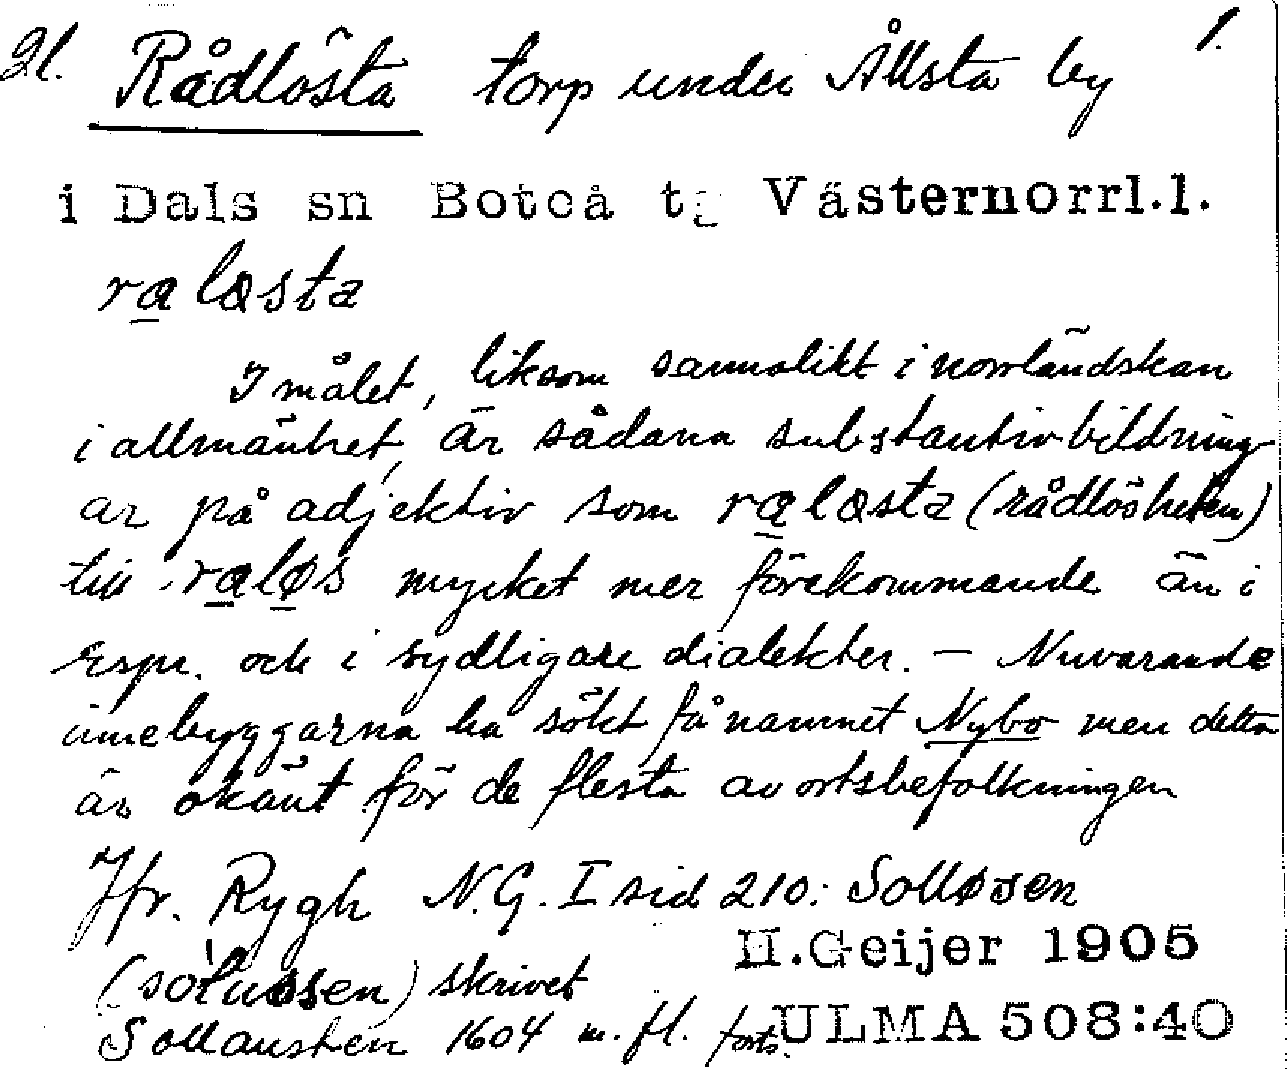 21. Rådlösta torp under Ållsta by 1.
i Dals sn Boteå tg Västernorrl.l.
ralæsta
I målet, liksom sannolikt i norrländskan
i allmänhet, är sådana substantivbildning-
ar på adjektiv som ralæsta (rådlösheten)
till raløs mycket mer förekommande än i
rspr. och i sydligare dialekter. – Nuvarande
innebyggarna ha sökt få namnet Nybo men detta
är okänt för de flesta av ortsbefolkningen
Jfr. Rygh N.G. I sid 210: Solløsen
H.Geijer 1905
(sòlussen) skrivet
Sollausten 1604 m.fl. forts.
ULMA 508:40